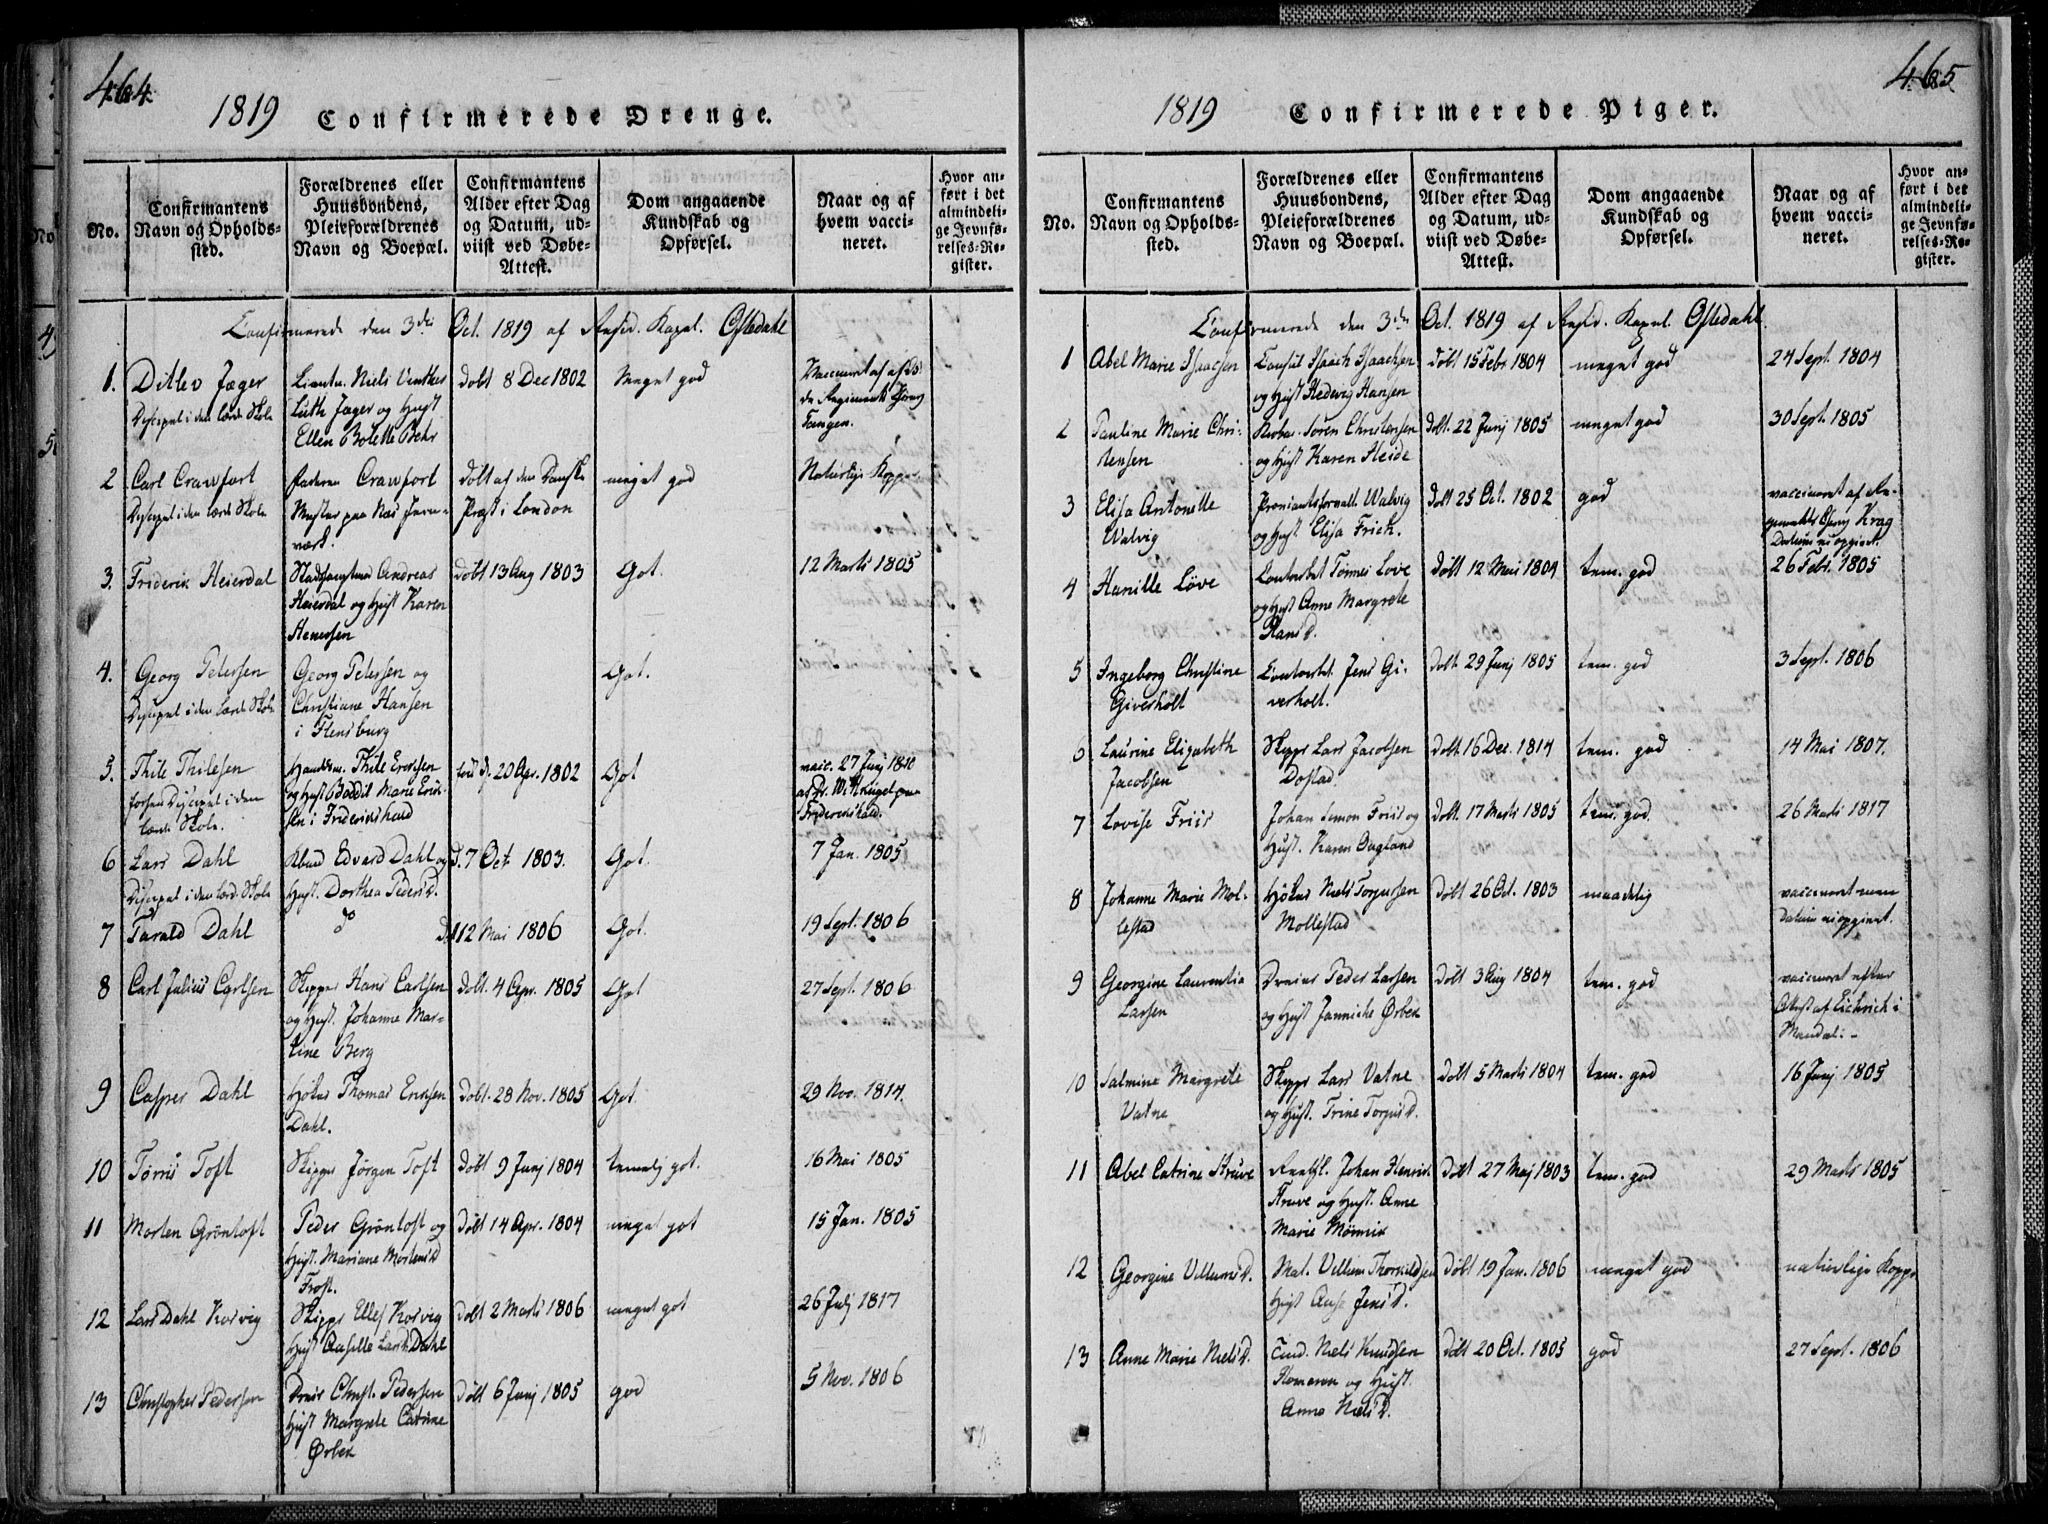 464.
1819 Confirmerede Drenge.
No.
Confirmantens
Navn og Opholds-
sted.
Forældrenes eller
Huusbondens,
Pleieforældrenes
Navn og Boepæl.
Confirmantens
Alder efter Dag
og Datum, ud-
viist ved Døbe-
Attest.
Dom angaaende
Kundskab og
Opførsel.
Naar og af
hvem vacci-
neret.
Hvor an-
ført i det
almindeli-
ge Jevnfø-
relses-Re-
gister.
Confirmerede den 3die Oct. 1819 af Resid. Kapel. Oftedahl
1. Ditlev Jæger
Discipel i den lærde Skole
Lieutn. Niels
Luth Jæger og Hust
Ellen Bolette Behr
døbt 8 Dec 1802
Meget god
Vaccineret af
Regiments Chirurg
Fangen.
2 Carl Crawfort
Discipel i den lærde Skole
Faderen Crawfort
Mester paa Næs Jern-
værk.
døbt af den Danske
Præst i London
meget god
Naturlige Kopper
3. Friderik Heierdal
Andreas
Heierdal og Hust Karen
døbt 13 Aug 1803
Got.
12 Marti 1805
4. Georg Petersen
Discipel i den lærde Skole
Georg Petersen og
Christiane Hansen
i Flensburg
Got.
5. Thile Thilesen
forhen Discipel i den
lærde Skole.
Thile Ericksen
og Hust Boddil Marie Erik-
sen i Friderikshald
20 Apr. 1802
Got
vacc. 27 Junj 1810
paa
Frideriershald.
6 Lars Dahl
Discipel i den lærde Skole
Edvard Dahl og
Hust. Dorthea Peders D.
D. 7 Oct 1803.
Got.
7 Jan. 1805
7 Tarald Dahl
do
12 Mai 1806
Got.
19 Sept. 1806
8 Carl Julius Carlsen
Skipper Hans Carlsen
og Hust. Johanne Mar-
tine Berg
døbt. 4 Apr. 1805
Got
27 Sept. 1806
9 Casper Dahl
Høker Thomas Ericksen
Dahl.
Døbt. 28 Nov. 1805
Got.
29 Nov. 1814.
10 Tørris Toft
Skipper Jørgen Toft
døbt 9 Junj 1804
temelig got.
16 Mai 1805
11 Morten Grøntoft
Peder Grøntoft og
Hust. Mariane Mortens D
Frost.
døbt 14 Apr. 1804
meget got
15 Jan. 1805
12 Lars Dahl Korvig
Skipper Ellef Korvig
Hust Lars D. Dahl
døbt 2 Marti 1806
meget got
26 Julj 1817
13 Christopher Pedersen
Dreier Christ. Pedersen
Hust Margrete Catrine
Ørbek
døbt 6 Junj 1805
god
5 Nov. 1806
465
1819 Confirmerede Piger.
No.
Confirmantens
Navn og Opholds-
sted.
Forældrenes eller
Huusbondens,
Pleieforældrenes
Navn og Boepæl.
Confirmantens
Alder efter Dag
og Datum, ud-
viist ved Døbe-
Attest.
Dom angaaende
Kundskab og
Opførsel.
Naar og af
hvem vacci-
neret.
Hvor an-
ført i det
almindeli-
ge Jevnfø-
relses-Re-
gister.
Confirmerede den 3die Oct. 1819 af Resid. Kapel. Oftedahl.
1 Abel Marie Isaachsen
Consul Isaach Isaachsen
og Hust Hedevig Hansen
døbt 15 Febr 1804
meget god
24 Sept. 1804
2 Pauline Marie Chri-
stensen
Søren Christensen
og Hust Karen Heide
døbt. 22 Junj 1805
meget god
30 Sept. 1805
3 Elisa Antonette
Walvig
Proviantsforvalt. Walvig
og Hust Elisa Frich.
døbt 25 Oct. 1802
god
vaccineret af Re-
giments Chirurg Krag
Datum ei opgivet.
4 Hanille Løve
Contoirbet Tønnes Løve
og Hust Anne Margrete
Hans D.
døbt 12 Mai 1804
tem. god
26 Febr. 1805
5 Ingeborg Christine
Giverholt
Contoirbet. Jens Gi-
verholt.
døbt 29 Junj 1805
tem. god
3 Sept. 1806
6 Laurine Elizabeth
Jacobsen
Skipper Lars Jacobsen
Dostad
døbt. 16 Dec. 1814
tem. god
14 Mai 1807.
7 Lovise Friis
Johan Simon Friis og
Hust. Karen Augland
døbt. 17 Marti 1805
tem. god.
26 Marti 1817
8 Johanne Marie Mol-
lestad
Høker Niels Torgersen
Mollestad
døbt 26 Oct. 1803
maadelig
vaccineret men
Datum ei opgivet.
9 Georgine Laurentia
Larsen
Dreier Peder Larsen
og Hust Jannicke Ørbek
døbt 3 Aug 1804
tem. god
vaccineret efter
Attest af Eichrich i
Mandal.-
10 Salmine Margrete
Vatne
Skipper Lars Vatne
og Hust. Trine Torgers D.
døbt 5 Marti 1804
tem. god
16 Junj 1805
11 Abel Catrine Struve
Johan Henrik
Struve og Hust. Anne
Marie Mørmik
Døbt 27 Maj 1803
tem. god
29 Marti 1805
12 Georgine Villums D.
Mat. Villum Thorkildsen
Hust Anse Jens D.
døbt 19 Jan. 1806
meget god
naturlige Kopper
13 Anne Marie Niels D.
Niels Knudsen
og Hust.
Anne Niels D.
døbt 20 Oct. 1805
god
27 Sept. 1806